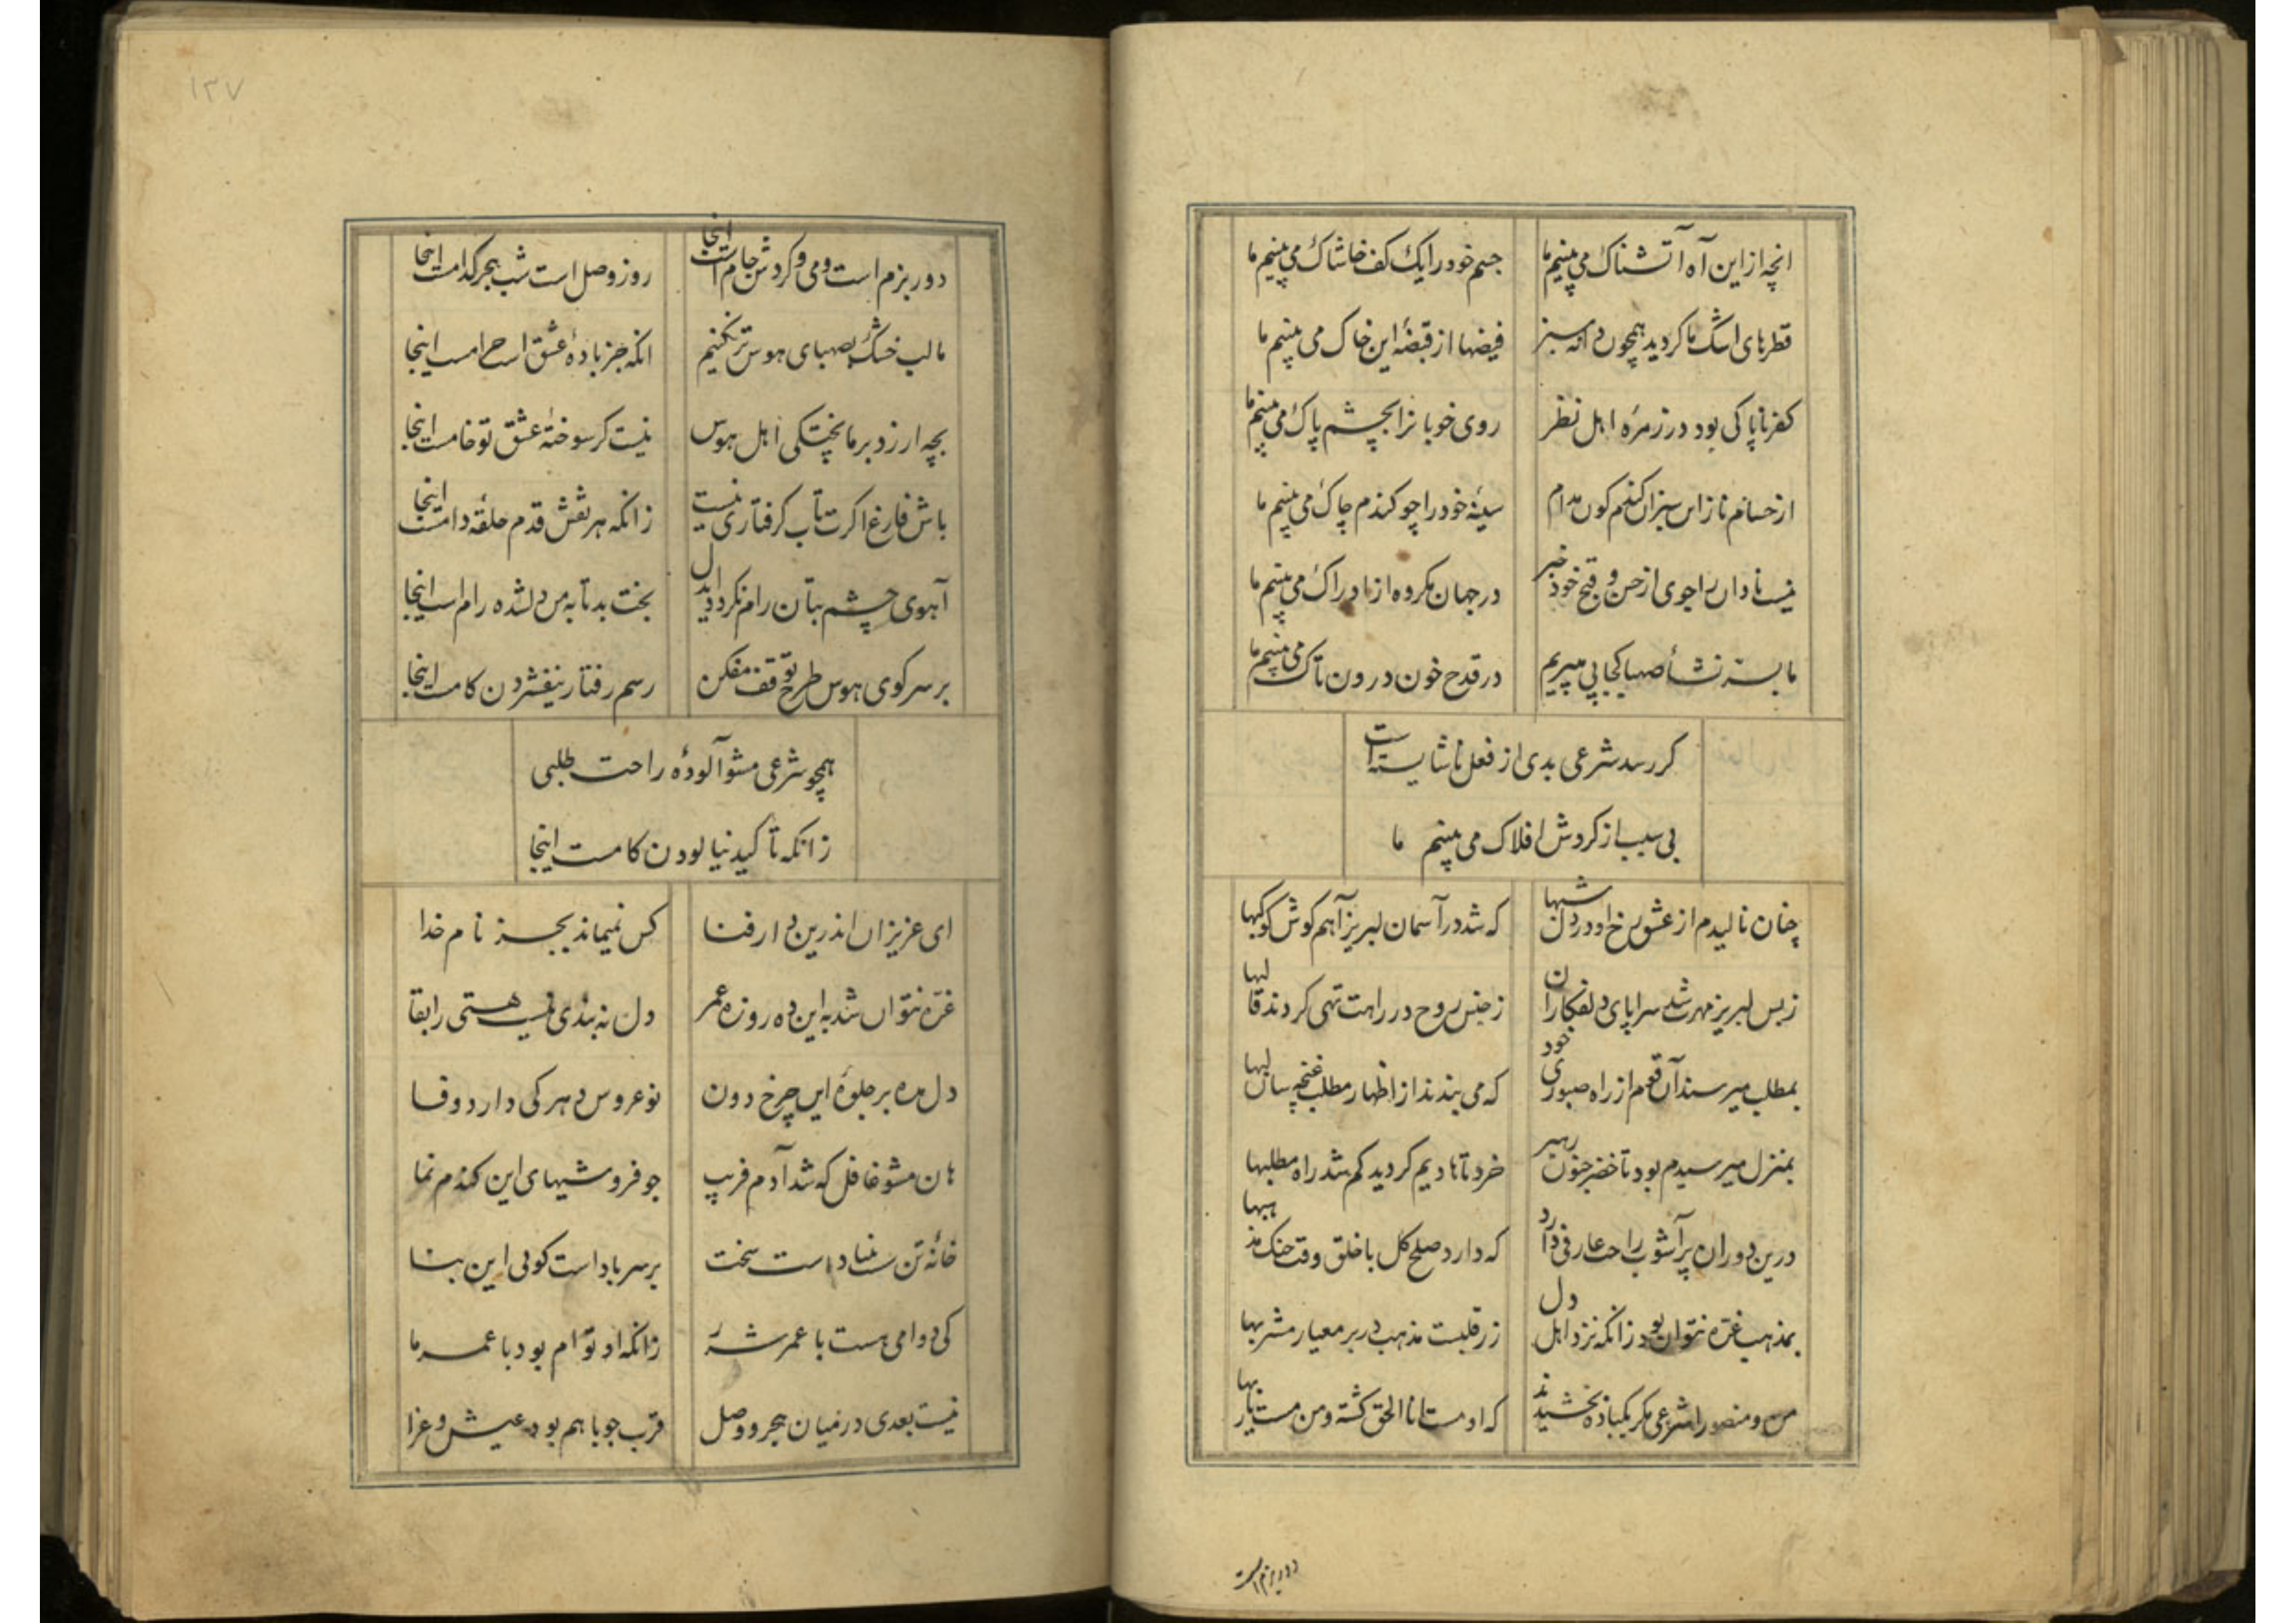 انچه از این آه آتشناک می بینیم ما
جسم خود را یک کف خاشاک می بینیم ما
قطرهای اشک ما کردید همچون دانه سبز
فیضها از قبضهٔ این خاک می بینیم ما
کفر ناپاکی بود در زمرهٔ اهل نظر
روی خوبانرا بچشم پاک می بینیم ما
از خسانم ناز این سبزان کندم کون مدام
سینهٔ خود را چو کندم چاک می بینیم ما
نیست نادان را جوی از حسن و قبح خود خبر
در جهان مکروه از ادراک می بینیم ما
ما بسر نشأ صهبا کجا پی میبریم
در قدح خون درون تاک می بینیم ما
کر رسد شرعی بدی از فعل ناشایسته است
بی سبب از کردش افلاک می بینم ما
چنان نالیدم از عشق رخ او در دل شبها
که شد در آسمان لبریز آهم کوش کوکبها
ز بس لبریز مهرت شد سراپای دلفکاران
ز جنس روح در راهت تهی کردند قالبها
بمطلب میرسند آن قوم از راه صبوری خود
که می بندند از اظهار مطلب غنچه سان لبها
بمنزل میرسیدم بود تا خضر جنون رهبر
خرد تا هادیم کردید کم شد راه مطلبها
درین دوران پر آشوب راحت عارفی دارد
که دارد صلح کل با خلق وقت جنک مذهبها
بمذهب غره نتوان بود زانکه نزد اهل دل
زر قلبست مذهب در بر معیار مشربها
من و منصور را شرعی مکر یکباده بخشیدند
که او مست انا الحق کشته و من مست یاربها
دور بزم است
۱۳۷
دور بزم است و می و کردش جام است اینجا
روز وصل است شب هجر کدامست اینجا
ما لب خشک بصهبای هوس تر نکنیم
انکه جز بادهٔ عشق است حرامست اینجا
بچه ارزد بر ما پختکی اهل هوس
نیست کر سوختهٔ عشق تو خامست اینجا
باش فارغ اکرت تاب کرفتاری نیست
زانکه هر نقش قدم حلقه دامست اینجا
آهوی چشم بتان رام نکردد ایدل
بخت بد تا به من دلشده رام است اینجا
بر سر کوی هوس طرح توقف مفکن
رسم رفتار نیفشردن کامست اینجا
همچو شرعی مشو آلودهٔ راحت طلبی
زانکه تا کید نیالودن کامست اینجا
ای عزیزان اندرین دار فنا
کس نمیماند بجز نام خدا
غره نتوان شد به این ده روزه عمر
دل نه بندی نیست هستی را بقا
دل مده بر جلوهٔ این چرخ دون
نو عروس دهر کی دارد وفا
هان مشو غافل که شد آدم فریب
جو فروشیهای این کندم نما
خانهٔ تن سست بنیاد است سخت
بر سر باد است کوئی این بنا
کی دوامی هست با عمر شرر
زانکه او توأم بود با عمر ما
نیست بعدی در میان هجر و وصل
قرب جو با هم بود عیش و عزا